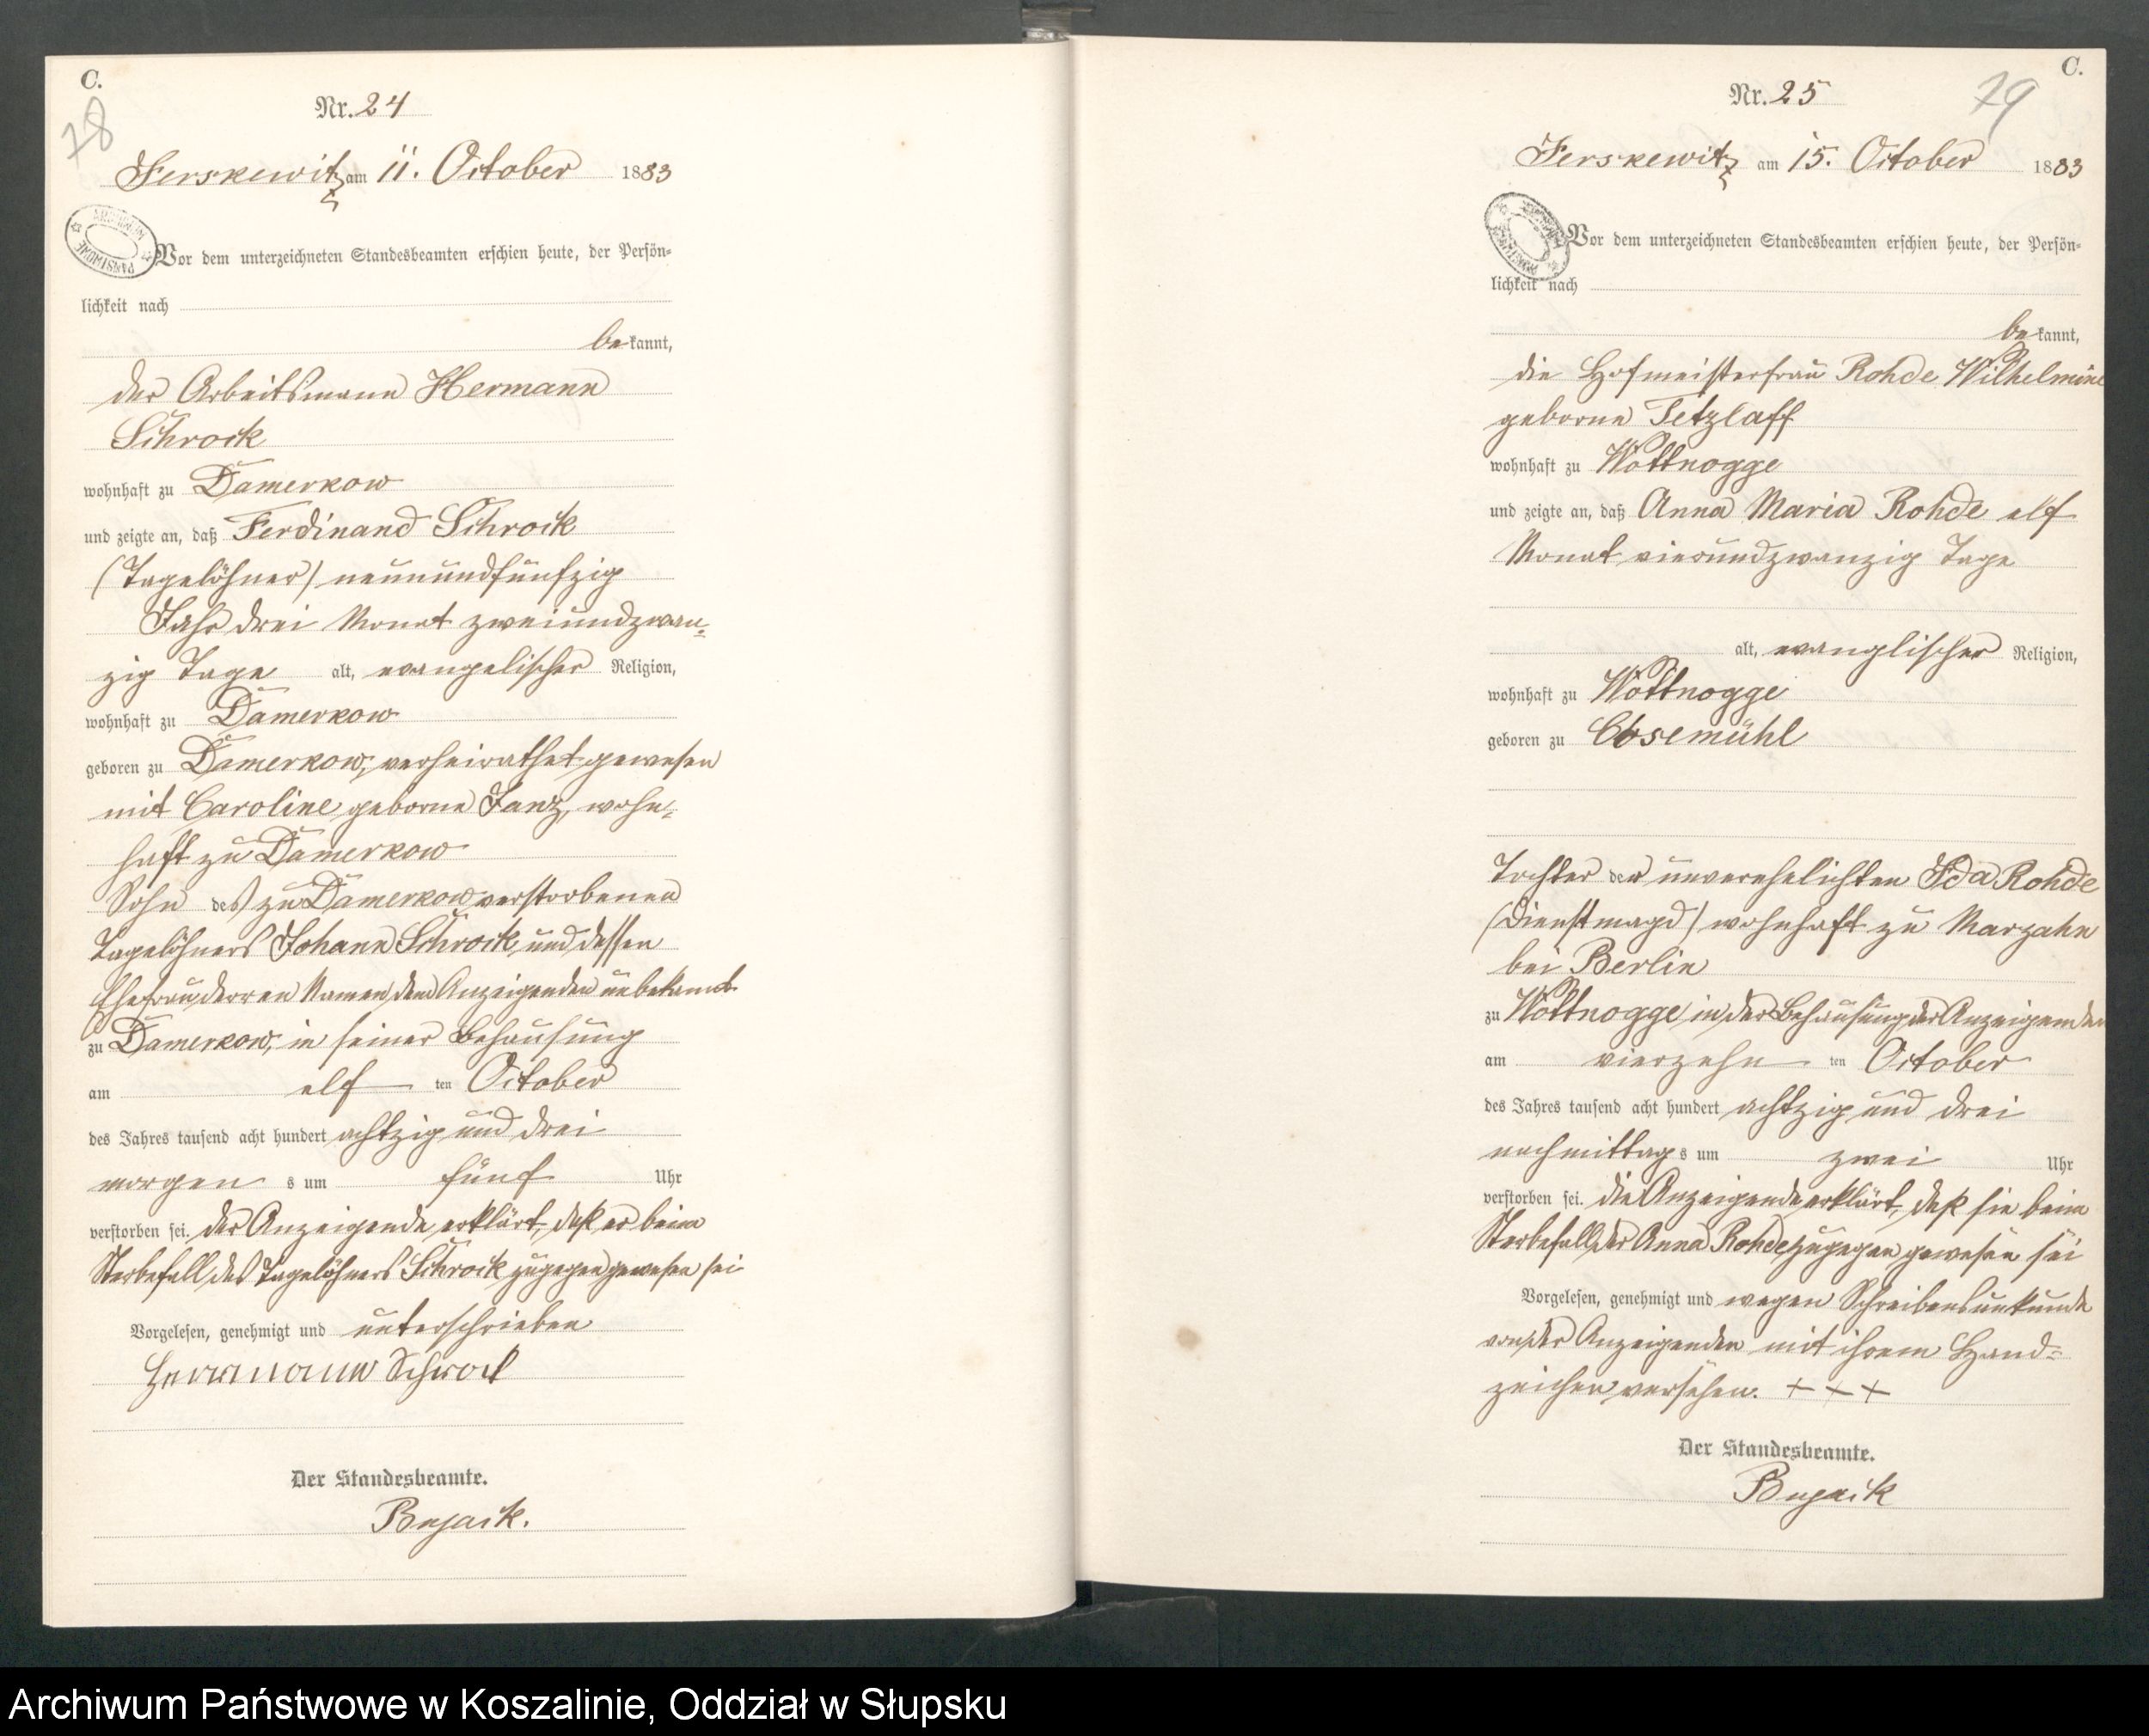 C.
78
Nr. 24
Jerskewitz am 11. October 1883
Vor dem unterzeichneten Standesbeamten erschien heute, der Persön-
lichkeit nach
bekannt,
der Arbeitsmann Hermann
Schrock
wohnhaft zu Damerkow
und zeigte an, daß Ferdinand Schrock
(Tagelöhner) neunundfünfzig
Jahr drei Monat zweiundzwan-
zig Tage alt, evangelischer Religion,
wohnhaft zu Damerkow
geboren zu Damerkow, verheirathet gewesen
mit Caroline geborne Janz, wohn-
haft zu Damerkow
Sohn des zu Damerkow verstorbenen
Tagelöhners Johann Schrock und dessen
Ehefrau, derren Namen dem Anzeigenden unbekannt
zu Damerkow, in seiner Behausung
am elf ten October
des Jahres tausend acht hundert achtzig und drei
morgens um fünf Uhr
verstorben sei. der Anzeigende erklärt, daß er beim
Sterbefall des Tagelöhners Schrock zugegen gewesen sei
Vorgelesen, genehmigt und unterschrieben
Herrmann Schrock
Der Standesbeamte.
Bujack.
C.
79
Nr. 25
Jerskewitz am 15. October 1883
Vor dem unterzeichneten Standesbeamten erschien heute, der Persön-
lichkeit nach
bekannt,
die Hofmeisterfrau Rohde Wilhelmine
geborne Tetzlaff
wohnhaft zu Wottnogge
und zeigte an, daß Anna Maria Rohde elf
Monat vierundzwanzig Tage
alt, evanglischer Religion,
wohnhaft zu Wottnogge
geboren zu Cosemühl
Tochter der unverehelichten Ida Rohde
(Dienstmagd) wohnhaft zu Marzahn
bei Berlin
zu Wottnogge, in der Behausung der Anzeigenden
am vierzehn ten October
des Jahres tausend acht hundert achtzig und drei
nachmittags um zwei Uhr
verstorben sei. die Anzeigende erklärt, daß sie beim
Sterbefall der Anna Rohde zugegen gewesen sei
Vorgelesen, genehmigt und wegen Schreibensunkunde
von der Anzeigenden mit ihrem Hand-
zeichen versehen. + + +
Der Standesbeamte.
Bujack
Archiwum Państwowe w Koszalinie, Oddział w Słupsku